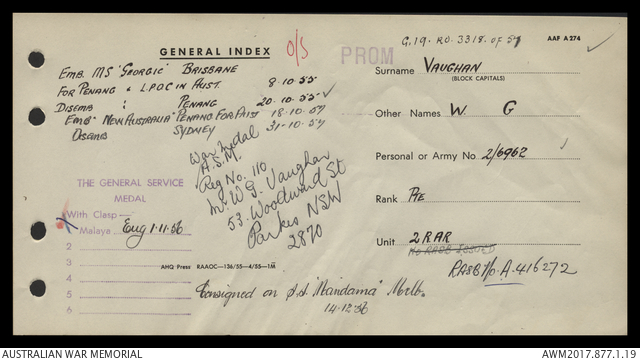 G.19. R.O. 3318. of 57
AAF A 274
GENERAL INDEX
O/S
PROM
EMB. MS "GEORGIC" BRISBANE
FOR PENANG & L.P.O.C IN AUST. 8.10.55
DISEMB " PENANG 20.10.55
EMB "NEW AUSTRALIA" PENANG FOR AUST 18.10.57
DISEMB SYDNEY 31-10.57
Surname VAUGHAN
(BLOCK CAPITALS)
Other Names W. G
Personal or Army No. 2/6962
Rank PTE
Unit 2 RAR
NO RASB ISSUED
RASB No. A. 416272
War Medal
A.S.M.
Reg No. 110
Mr. W. G. Vaughan
53. Woodward St
Parkes NSW
2870
THE GENERAL SERVICE
MEDAL
With Clasp
1 Malaya Eng 1.11.56
2
3
4
5
6
AHQ Press RAAOC—136/55—4/55—1M
Consigned on s.s. "Mandama" Melb.
14.12.56
AUSTRALIAN WAR MEMORIAL
AWM2017.877.1.19